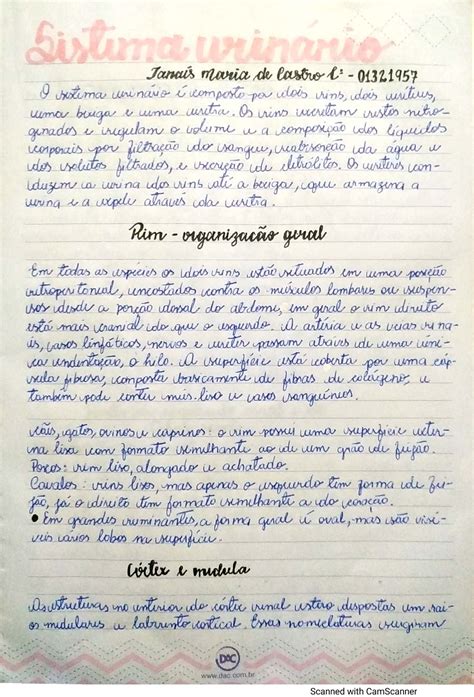 Sistema urinário
Tanaís Maria de Castro - 01321957
O sistema urinário é composto por dois rins, dois ureteres,
uma bexiga e uma uretra. Os rins excretam restos nitro-
genados e regulam o volume e a composição dos líquidos
corporais por filtração do sangue, reabsorção da água e
dos solutos filtrados, e excreção de eletrólitos. Os ureteres con-
duzem a urina dos rins até a bexiga, que armazena a
urina e a expele através da uretra.
Rim - organização geral
Em todas as espécies os dois rins estão situados em uma posição
retroperitonial, encostados contra os músculos lombares ou suspen-
sos desde a porção dorsal do abdome, em geral o rim direito
está mais cranial do que o esquerdo. A artéria e as veias re-
nais, vasos linfáticos, nervos e ureter passam através de uma úni-
ca endentação, o hilo. A superfície está coberta por uma cáp-
sula fibrosa, composta basicamente de fibras de colágeno, e
também pode conter mús. liso e vasos sanguíneos.
Cães, gatos, ovinos e caprinos: o rim possui uma superfície exter-
na lisa com formato semelhante ao de um grão de feijão.
Porcos: rim liso, alongado e achatado.
Cavalos: rins lisos, mas apenas o esquerdo tem forma de fei-
jão, já o direito tem formato semelhante a do coração.
• Em grandes ruminantes, a forma geral é oval, mas são visí-
veis vários lobos na superfície.
Córtex e medula
As estruturas no interior do córtex renal estão dispostas em rai-
os medulares e labirinto cortical. Essas nomenclaturas surgiram
DAC
www.dac.com.br
Scanned with CamScanner